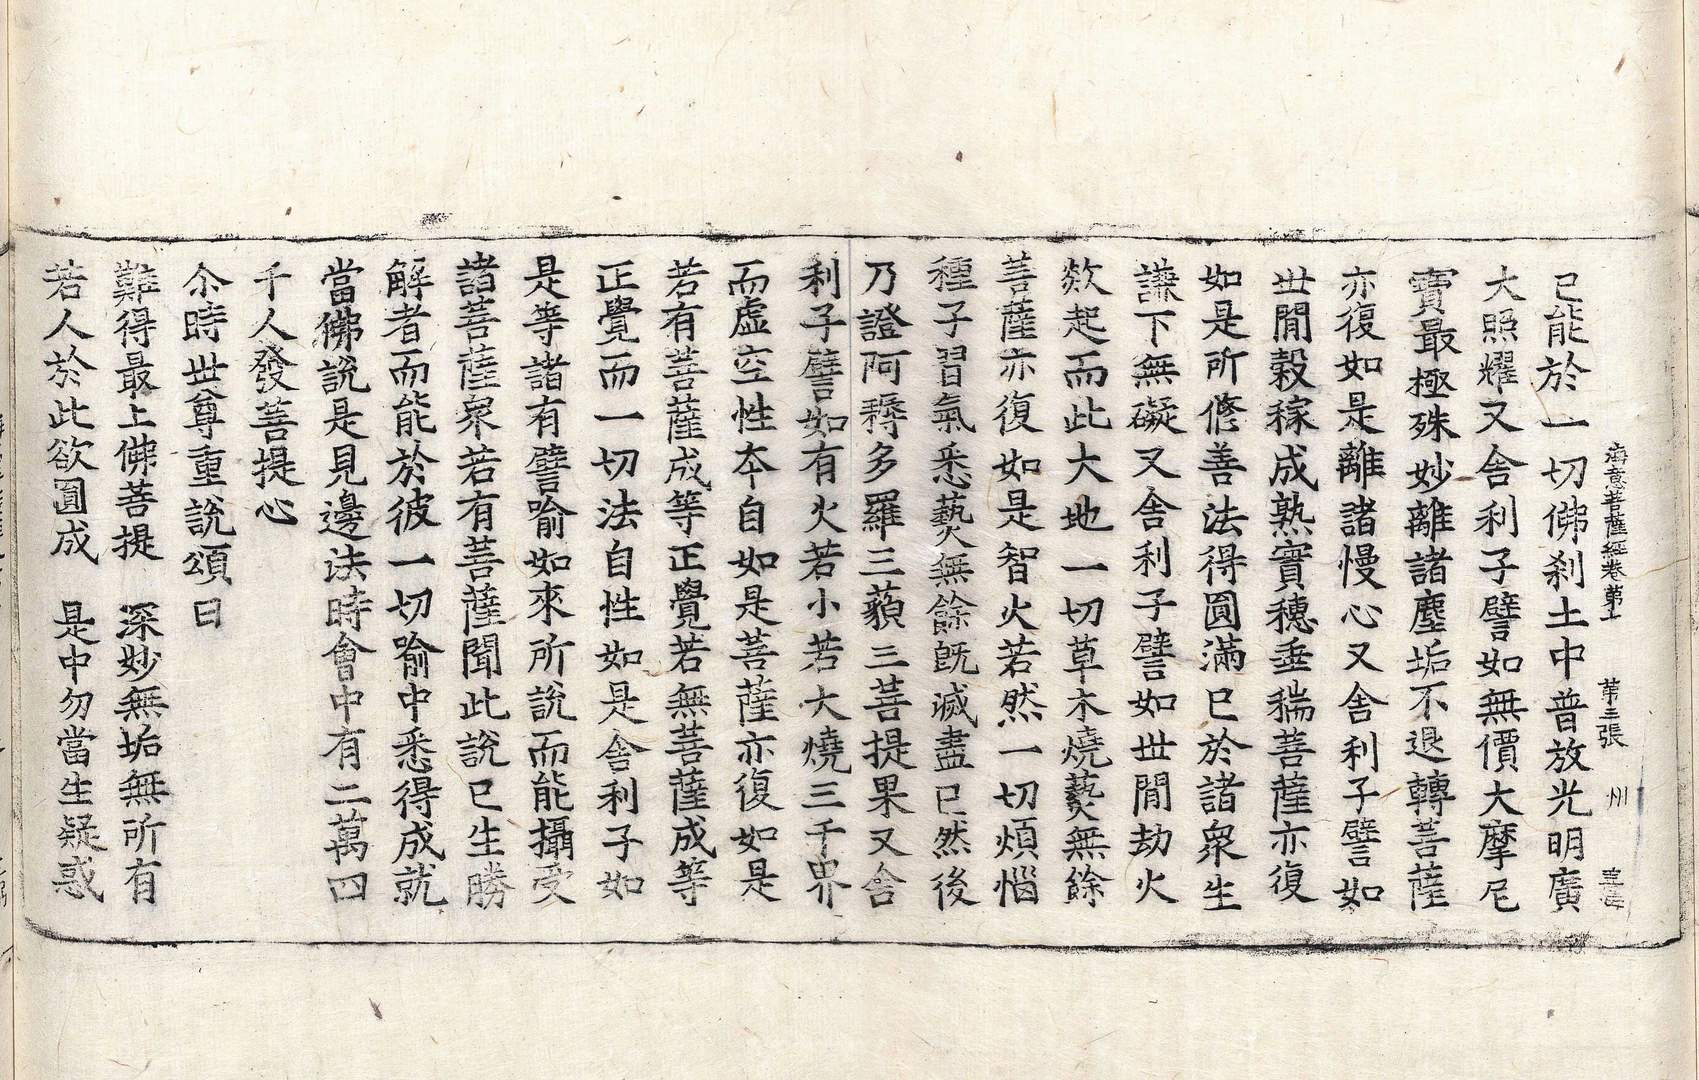 海意菩薩經卷第十 第三張 州
已能於一切佛剎土中普放光明廣
大照耀又舍利子譬如無價大摩尼
寶最極殊妙離諸塵垢不退轉菩薩
亦復如是離諸慢心又舍利子譬如
世間穀稼成熟實穗垂䅹菩薩亦復
如是所修善法得圓滿已於諸衆生
謙下無礙又舍利子譬如世間劫火
欻起而此大地一切草木燒爇無餘
菩薩亦復如是智火若然一切煩惱
種子習氣悉爇無餘旣滅盡已然後
乃證阿耨多羅三藐三菩提果又舍
利子譬如有火若小若大燒三千界
而虛空性本自如是菩薩亦復如是
若有菩薩成等正覺若無菩薩成等
正覺而一切法自性如是舍利子如
是等諸有譬喻如來所說而能攝受
諸菩薩衆若有菩薩聞此說已生勝
解者而能於彼一切喻中悉得成就
當佛說是見邊法時會中有二萬四
千人發菩提心
尒時世尊重說頌曰
難得最上佛菩提 深妙無垢無所有
若人於此欲圓成 是中勿當生疑惑